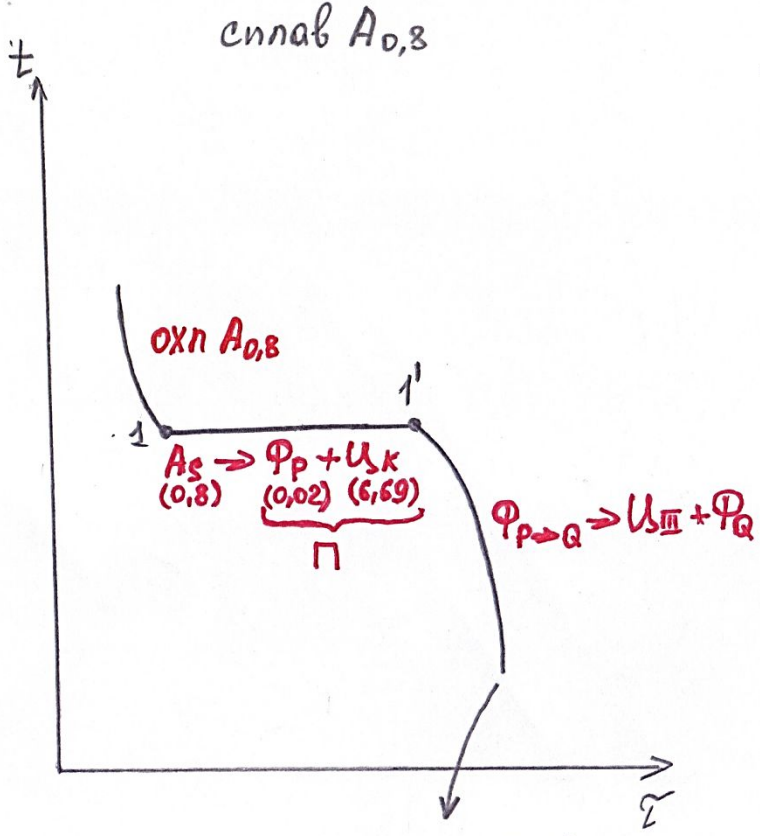 сплав A₀,₈
t
охл A₀,₈
1'
1
Aₛ → Фₚ + Цₖ
(0,8) (0,02) (6,69)
П
Фₚ→Q → Цⅲ + ФQ
τ